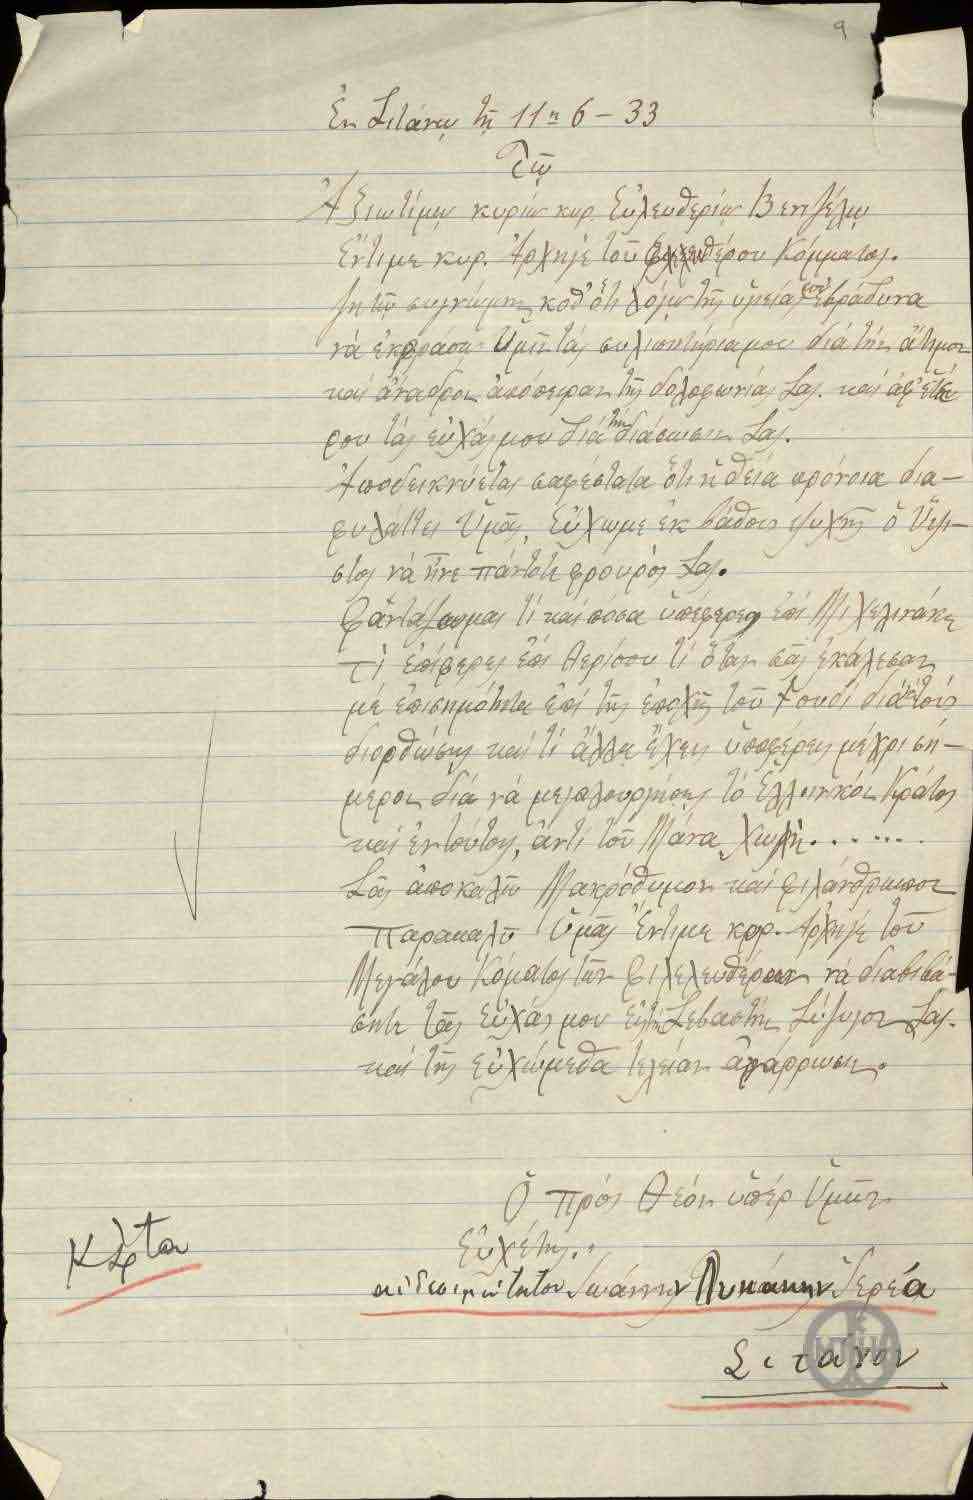 9
Ἐν Σιτάνῳ τῇ 11ῃ 6-33
Τῷ
Ἀξιωτίμῳ κυρίῳ κυρ. Ἐλευθερίῳ Βενιζέλῳ
Ἔντιμε κυρ. Ἀρχηγέ τοῦ Φιλελευθέρου Κόμματος.
Ζητῶ συγνώμην καθ' ὅτι λόγῳ τῆς ὑγείας μου ἐβράδυνα
νά ἐκφράσω Ὑμῖν τάς συλιπητήρια μου διά τήν ἄτιμον
καί ἄναδρον ἀπόπειραν τῆς δολοφωνίας Σας. καί ἀφ' ἑτέ
ρου τάς εὐχάς μου διά τήν διάσωσιν Σας.
Ἀποδεικνύεται σαφέστατα ὅτι ἡ θεία πρόνοια δια-
φυλάττει Ὑμᾶς, εὔχωμε ἐκ βάθους ψυχῆς ὁ Ὕψι-
στος νά ἦνε πάντοτε φρουρός Σας.
Φαντάζωμαι τί καί πόσα ὑπέφερες ἐπί Μιχελιδάκη
τί ἐπίφερες ἐπί Θερίσου τί ὅταν σᾶς ἐκάλεσαν
μέ ἐπισημότητα ἐπί τῆς ἐποχῆς τοῦ Γουδί διά τάς
διορθώσεις καί τί ἄλλα ἔχεις ὑποφέρεις μέχρι σή-
μερον διά νά μεγαλουργήσεις τό Ἑλληνικόν Κράτος
καί ἐν τούτοις, ἀντί τοῦ Μάνα, χολή.......
Σᾶς ἀποκαλῶ Μακρόθυμον καί φιλάνθρωπον
παρακαλῶ Ὑμᾶς Ἔντιμε κυρ. Ἀρχηγέ τοῦ
Μεγάλου Κόματος τῶν Φιλελευθέρων νά διαβιβά-
σητε τάς εὐχάς μου εἰς τήν Σεβαστήν Σύζυγον Σας.
καί τῆς εὐχώμεθα τελείαν ἀνάρρωσιν.
Ὁ πρός Θεόν ὑπέρ Ὑμῶν
Εὐχέτης..
αἰδεσιμώτατον Ἰωάννην Πυκάκην Ἱερέα
Σιτάνον